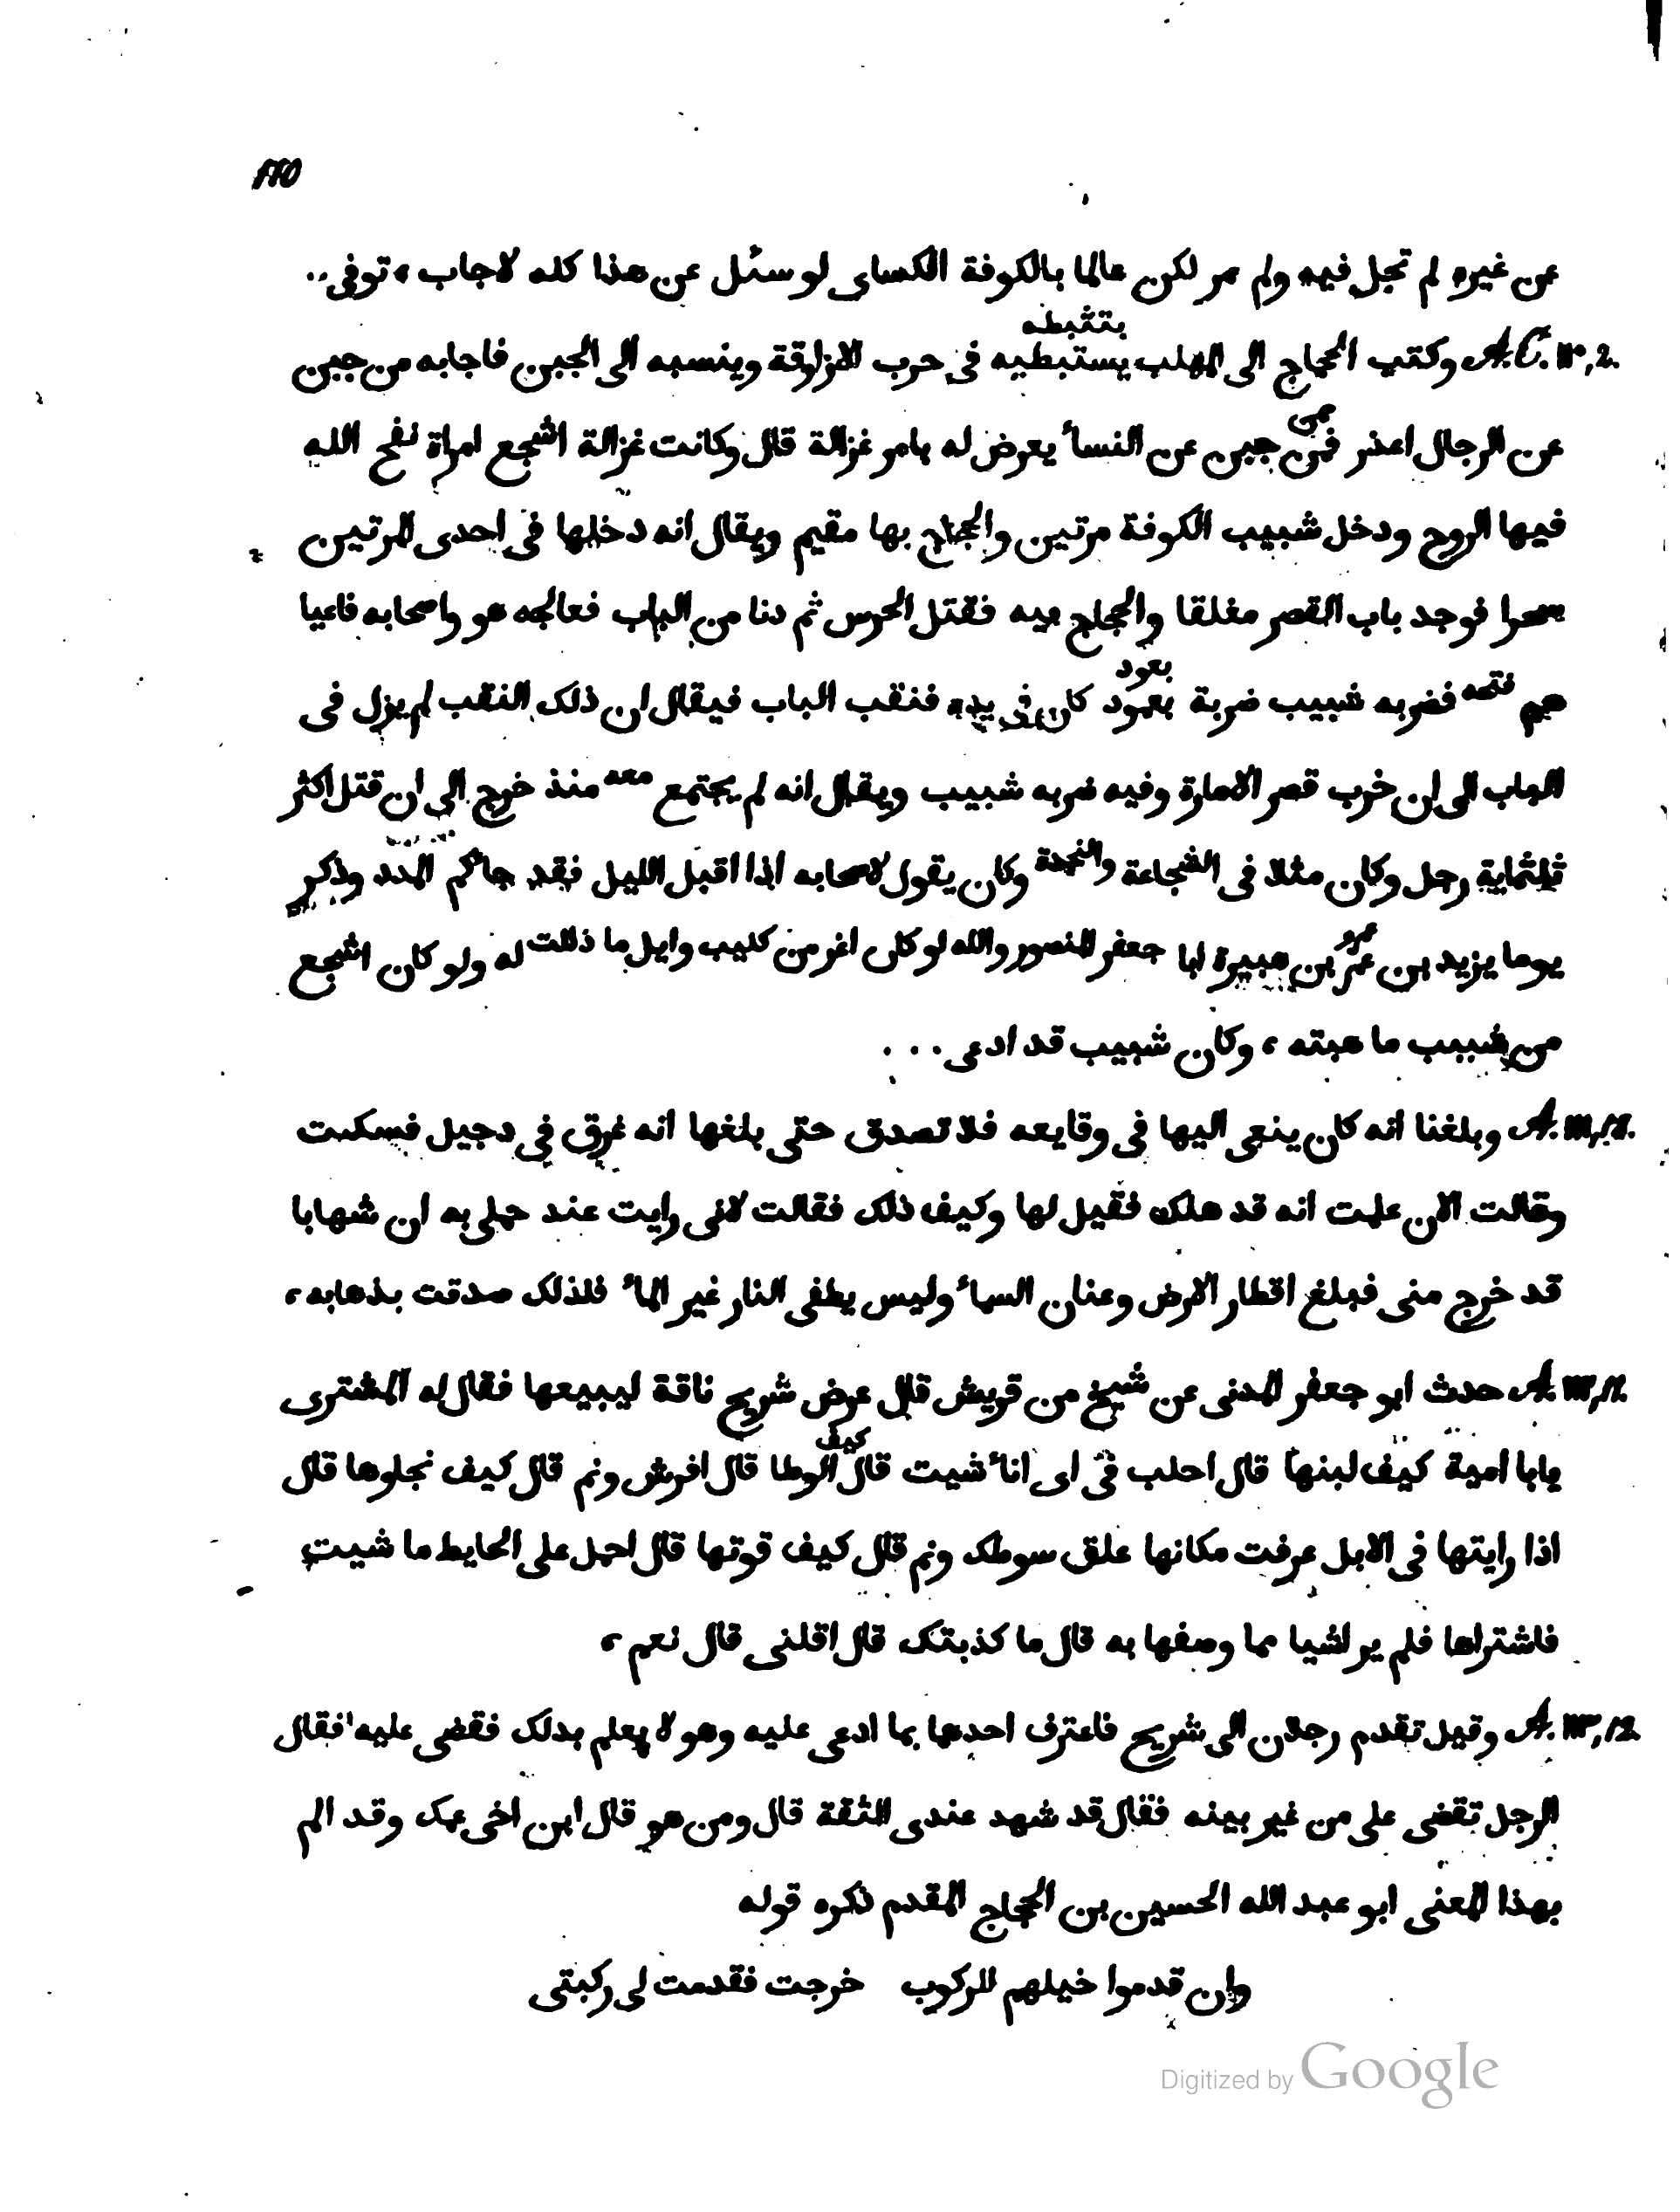 ١٢٥
عن غيره لم تجل فيه ولم مر لكن عالما بالكوفة الكساى لو سئل عن هذا كله لاجاب ، توفى ..
A.C. ١١٠, 2. وكتب الحجاج الى المهلب يستبطيه فى حرب الازارقة وينسبه الى الجبن فاجابه من جبن
بتثبطه
عن الرجال اعذر فمن جبن عن النسأ يعرض له بامر غزالة قال وكانت غزالة اشجع امراة نفح الله
فيها الروح ودخل شبيب الكوفة مرتين والحجاج بها مقيم ويقال انه دخلها فى احدى المرتين
سحرا فوجد باب القصر مغلقا والحجاج فيه فقتل الحرس ثم دنا من الباب فعالجه هو واصحابه فاعيا
هم فتحه فضربه شبيب ضربة بعمود كان فى يده فنقب الباب فيقال ان ذلك النقب لم يزل فى
بعود
الباب الى ان خرب قصر الامارة وفيه ضربه شبيب ويقال انه لم يجتمع معه منذ خرج الى ان قتل اكثر
ثلثماية رجل وكان مثلا فى الشجاعة والنجدة وكان يقول لاصحابه اذا اقبل الليل فقد جاكم المدد وذكر
يوما يزيد بن عمر بن هبيرة ابا جعفر المنصور والله لو كان اغر من كليب وايل ما ذللت له ولو كان اشجع
عمرو
من شبيب ما هبته ، وكان شبيب قد ادعى ...
A. ١١١, ١٢. وبلغنا انه كان ينعى اليها فى وقايعه فلا تصدق حتى بلغها انه غرق فى دجيل فسكت
وقالت الان علمت انه قد هلك فقيل لها وكيف ذلك فقالت لانى رايت عند حملى به ان شهابا
قد خرج منى فبلغ اقطار الارض وعنان السمأ وليس يطفى النار غير المأ فلذلك صدقت بذهابه ،
A. حدث ابو جعفر المدنى عن شيخ من قريش قال عرض شريح ناقة ليبيعها فقال له المشترى
يابا امية كيف لبنها قال احلب فى اى انأ شيت قال كيف الوطا قال افرش ونم قال كيف نجلوها قال
اذا رايتها فى الابل عرفت مكانها علق سوطك ونم قال كيف قوتها قال احمل على الحايط ما شيت
فاشتراها فلم ير لشيا مما وصفها به قال ما كذبتك قال اقلنى قال نعم ،
A. وقيل تقدم رجلان الى شريح فاعترف احدهما بما ادعى عليه وهو لا يعلم بدلك فقضى عليه فقال
الرجل تقضى على من غير بينه فقال قد شهد عندى الثقة قال ومن هو قال ابن اخى عمك وقد الم
بهذا المعنى ابو عبد الله الحسين بن الحجاج المقدم ذكره قوله
وان قدموا خيلهم للركوب خرجت فقدمت لى ركبتى
Digitized by Google